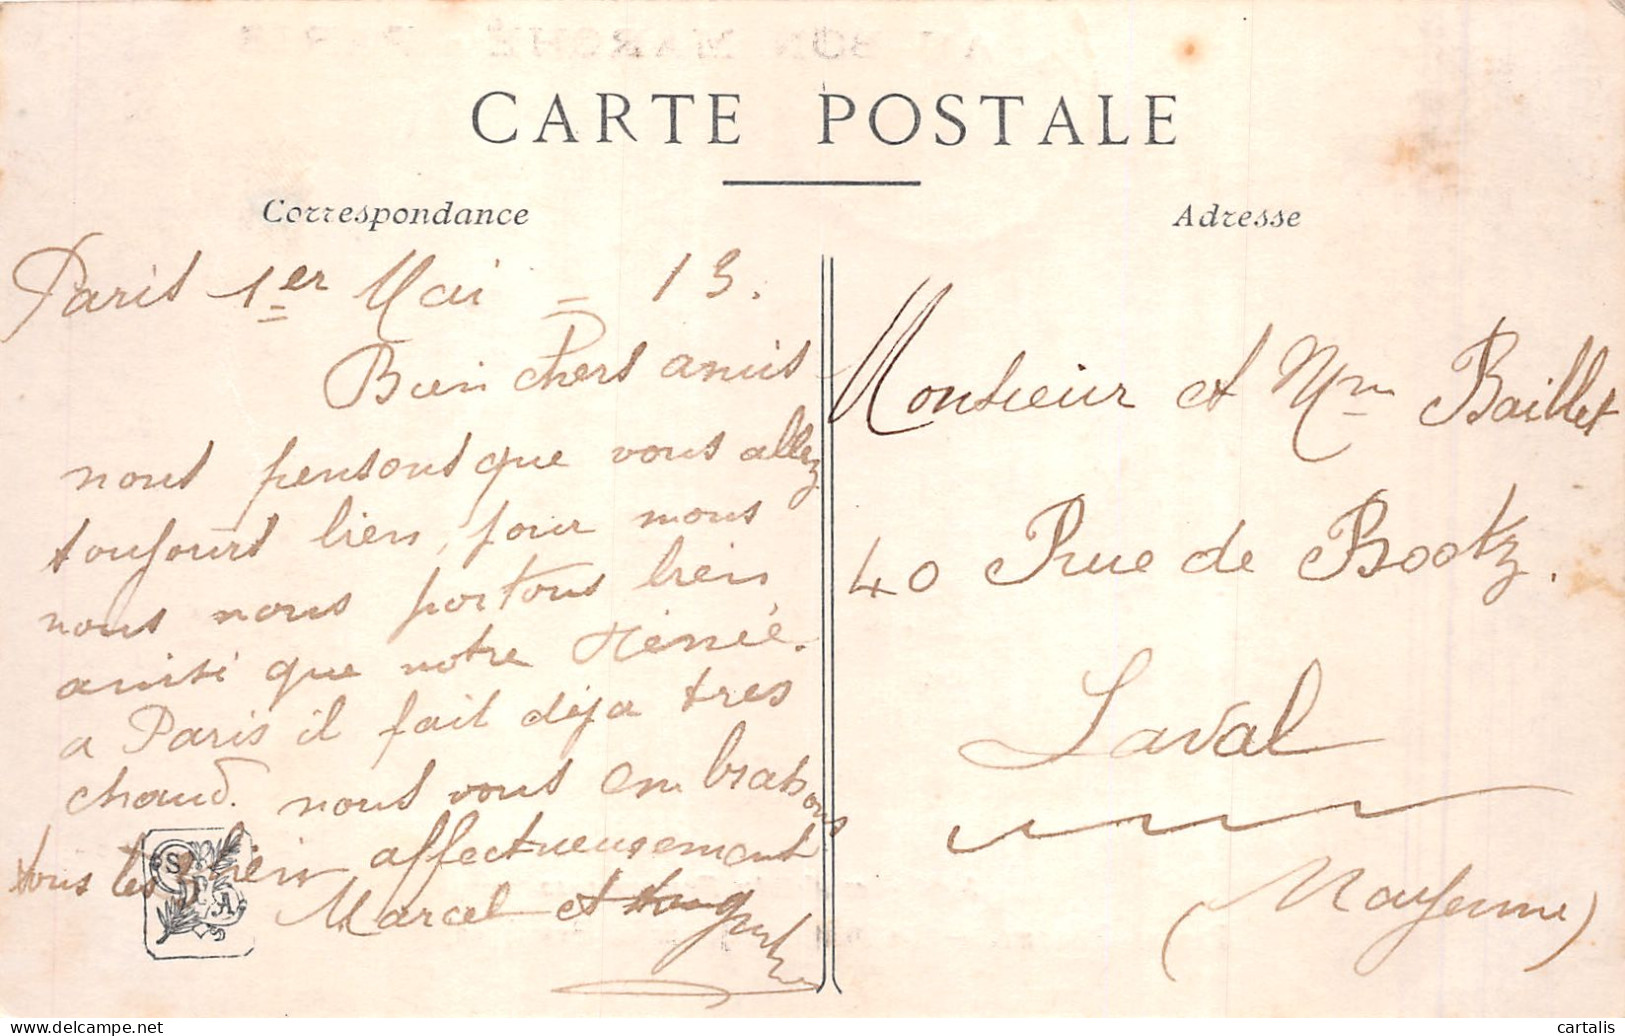 AU BON MARCHÉ PARIS
CARTE POSTALE
Correspondance
Adresse
Paris 1er Mai = 13.
Bien Chers amis
nous pensons que vous allez
toujours bien, pour nous
nous nous portons bien
ainsi que notre Rénée.
a Paris il fait déja tres
chaud. nous vous embrasons
tous les bien affectueusement
Marcel et
Monsieur et Mme Baillet
40 Rue de Bootz.
Laval
(Mayenne)
S
A
cartalis
www.delcampe.net